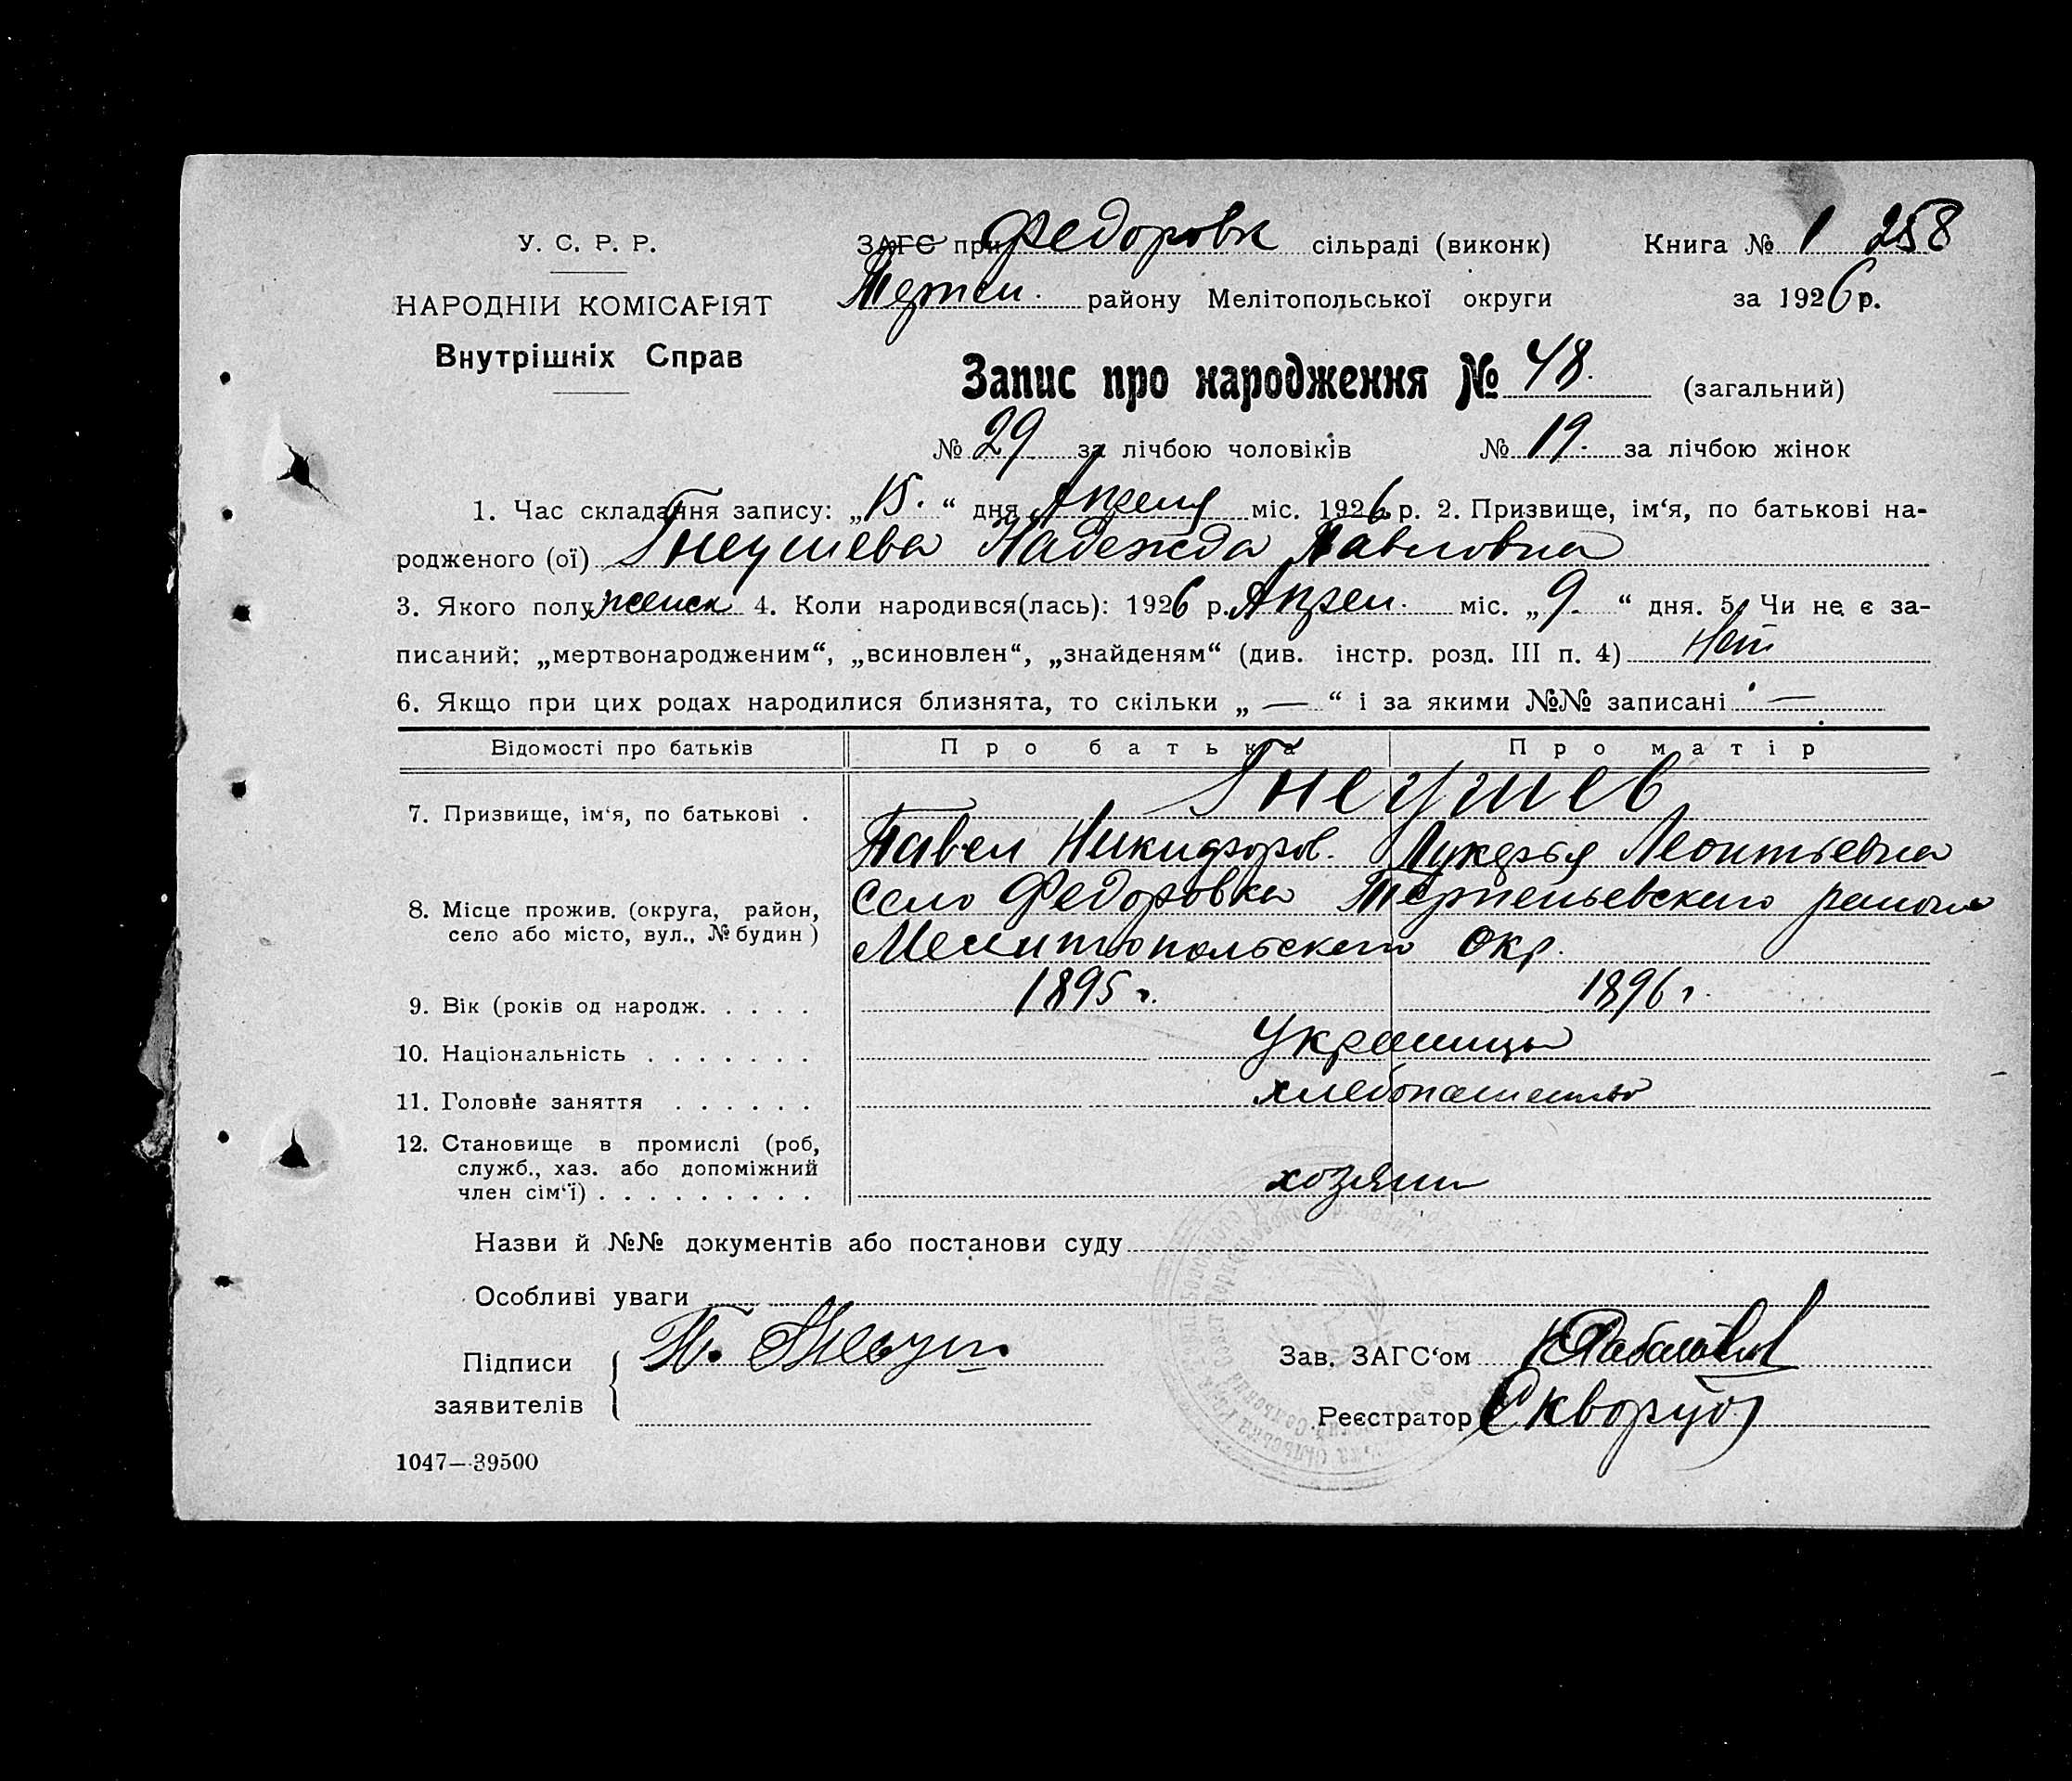 У. С. Р. Р.
НАРОДНІЙ КОМІСАРІЯТ
Внутрішніх Справ
ЗАГС при Федоровк сільраді (виконк) Книга № 1 258
Терпен. району Мелітопольської округи за 1926 р.
Запис про народження № 48. (загальний)
№ 29 за лічбою чоловіків № 19. за лічбою жінок
1. Час складання запису: „15.“ дня Апреля міс. 1926 р. 2. Призвище, ім‘я, по батькові на-
родженого (ої) Гнеушева Надежда Павловна
3. Якого полу женск 4. Коли народився(лась): 1926 р. Апрел. міс. „9.“ дня. 5. Чи не є за-
писаний: „мертвонародженим“, „всиновлен“, „знайденям“ (див. інстр. розд. III п. 4) Нет
6. Якщо при цих родах народилися близнята, то скільки „ — “ і за якими №№ записані —
Відомості про батьків Про батька Про матір
Гнеушев
7. Призвище, ім‘я, по батькові .
Павел Никифоров. Лукерья Леонтьевна
8. Місце прожив. (округа, район,
село або місто, вул., № будин)
село Федоровка Терпеньевского района
Мелитопольского окр.
9. Вік (років од народж. . . . . 1895 г. 1896 г.
10. Національність . . . . . . . Украинцы
11. Головне заняття . . . . . . хлебопашество
12. Становище в промислі (роб,
служб., хаз. або допоміжний
член сім‘ї) . . . . . . . . . хозяин
Назви й №№ документів або постанови суду
Особливі уваги
Підписи
заявителів
П.
Зав. ЗАГС‘ом
Реєстратор Скворцов
1047—39500